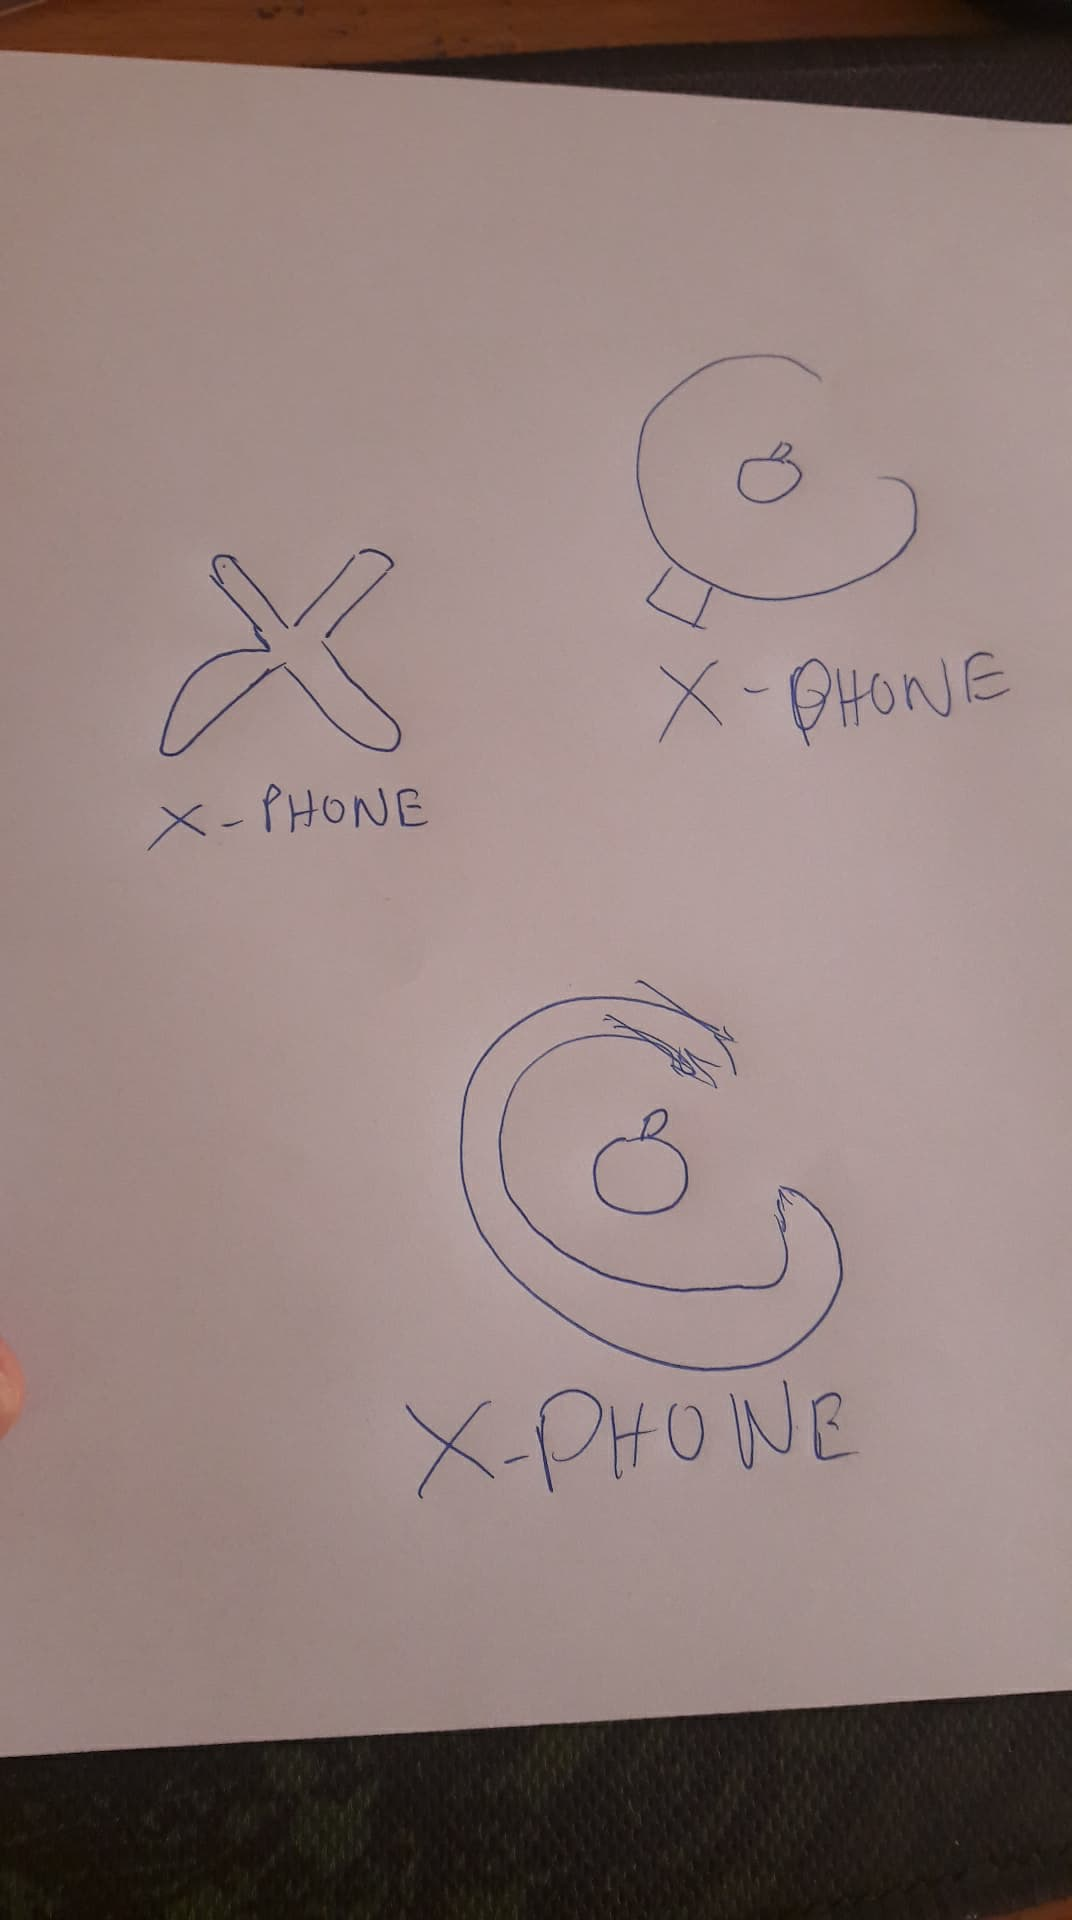 X-PHONE
X-PHONE
X-PHONE